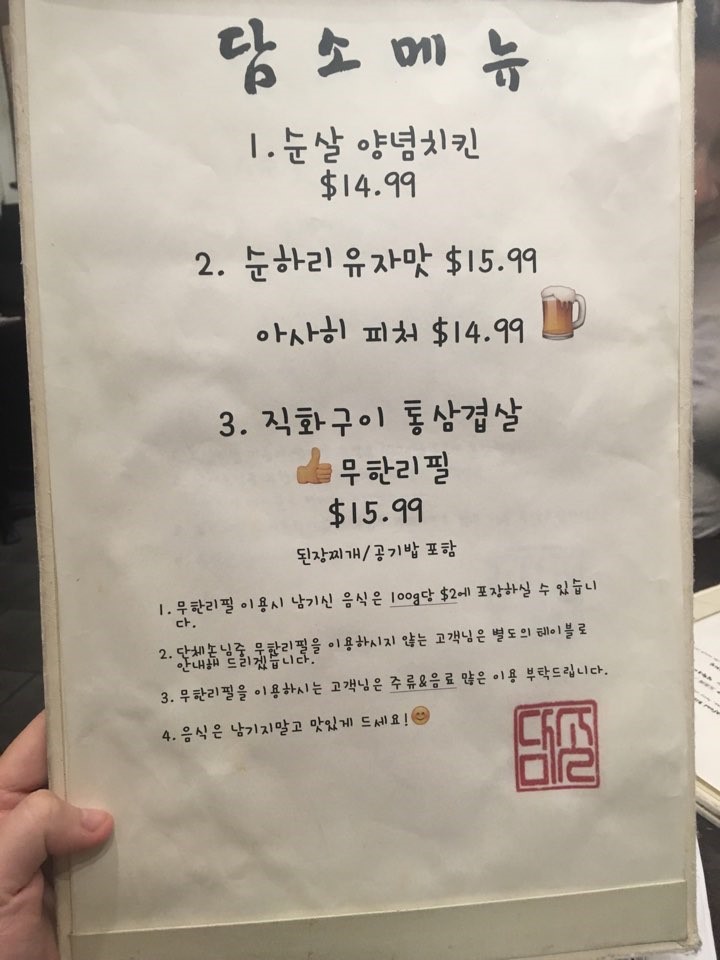 담소메뉴
1. 순살 양념치킨
$14.99
2. 순하리 유자맛 $15.99
아사히 피처 $14.99
3. 직화구이 통삼겹살
무한리필
$15.99
된장찌개/공기밥 포함
1. 무한리필 이용시 남기신 음식은 100g당 $2에 포장하실 수 있습니
다.
2. 단체손님중 무한리필을 이용하시지 않는 고객님은 별도의 테이블로
안내해 드리겠습니다.
3. 무한리필을 이용하시는 고객님은 주류&음료 많은 이용 부탁드립니다.
4. 음식은 남기지말고 맛있게 드세요!😊
담소